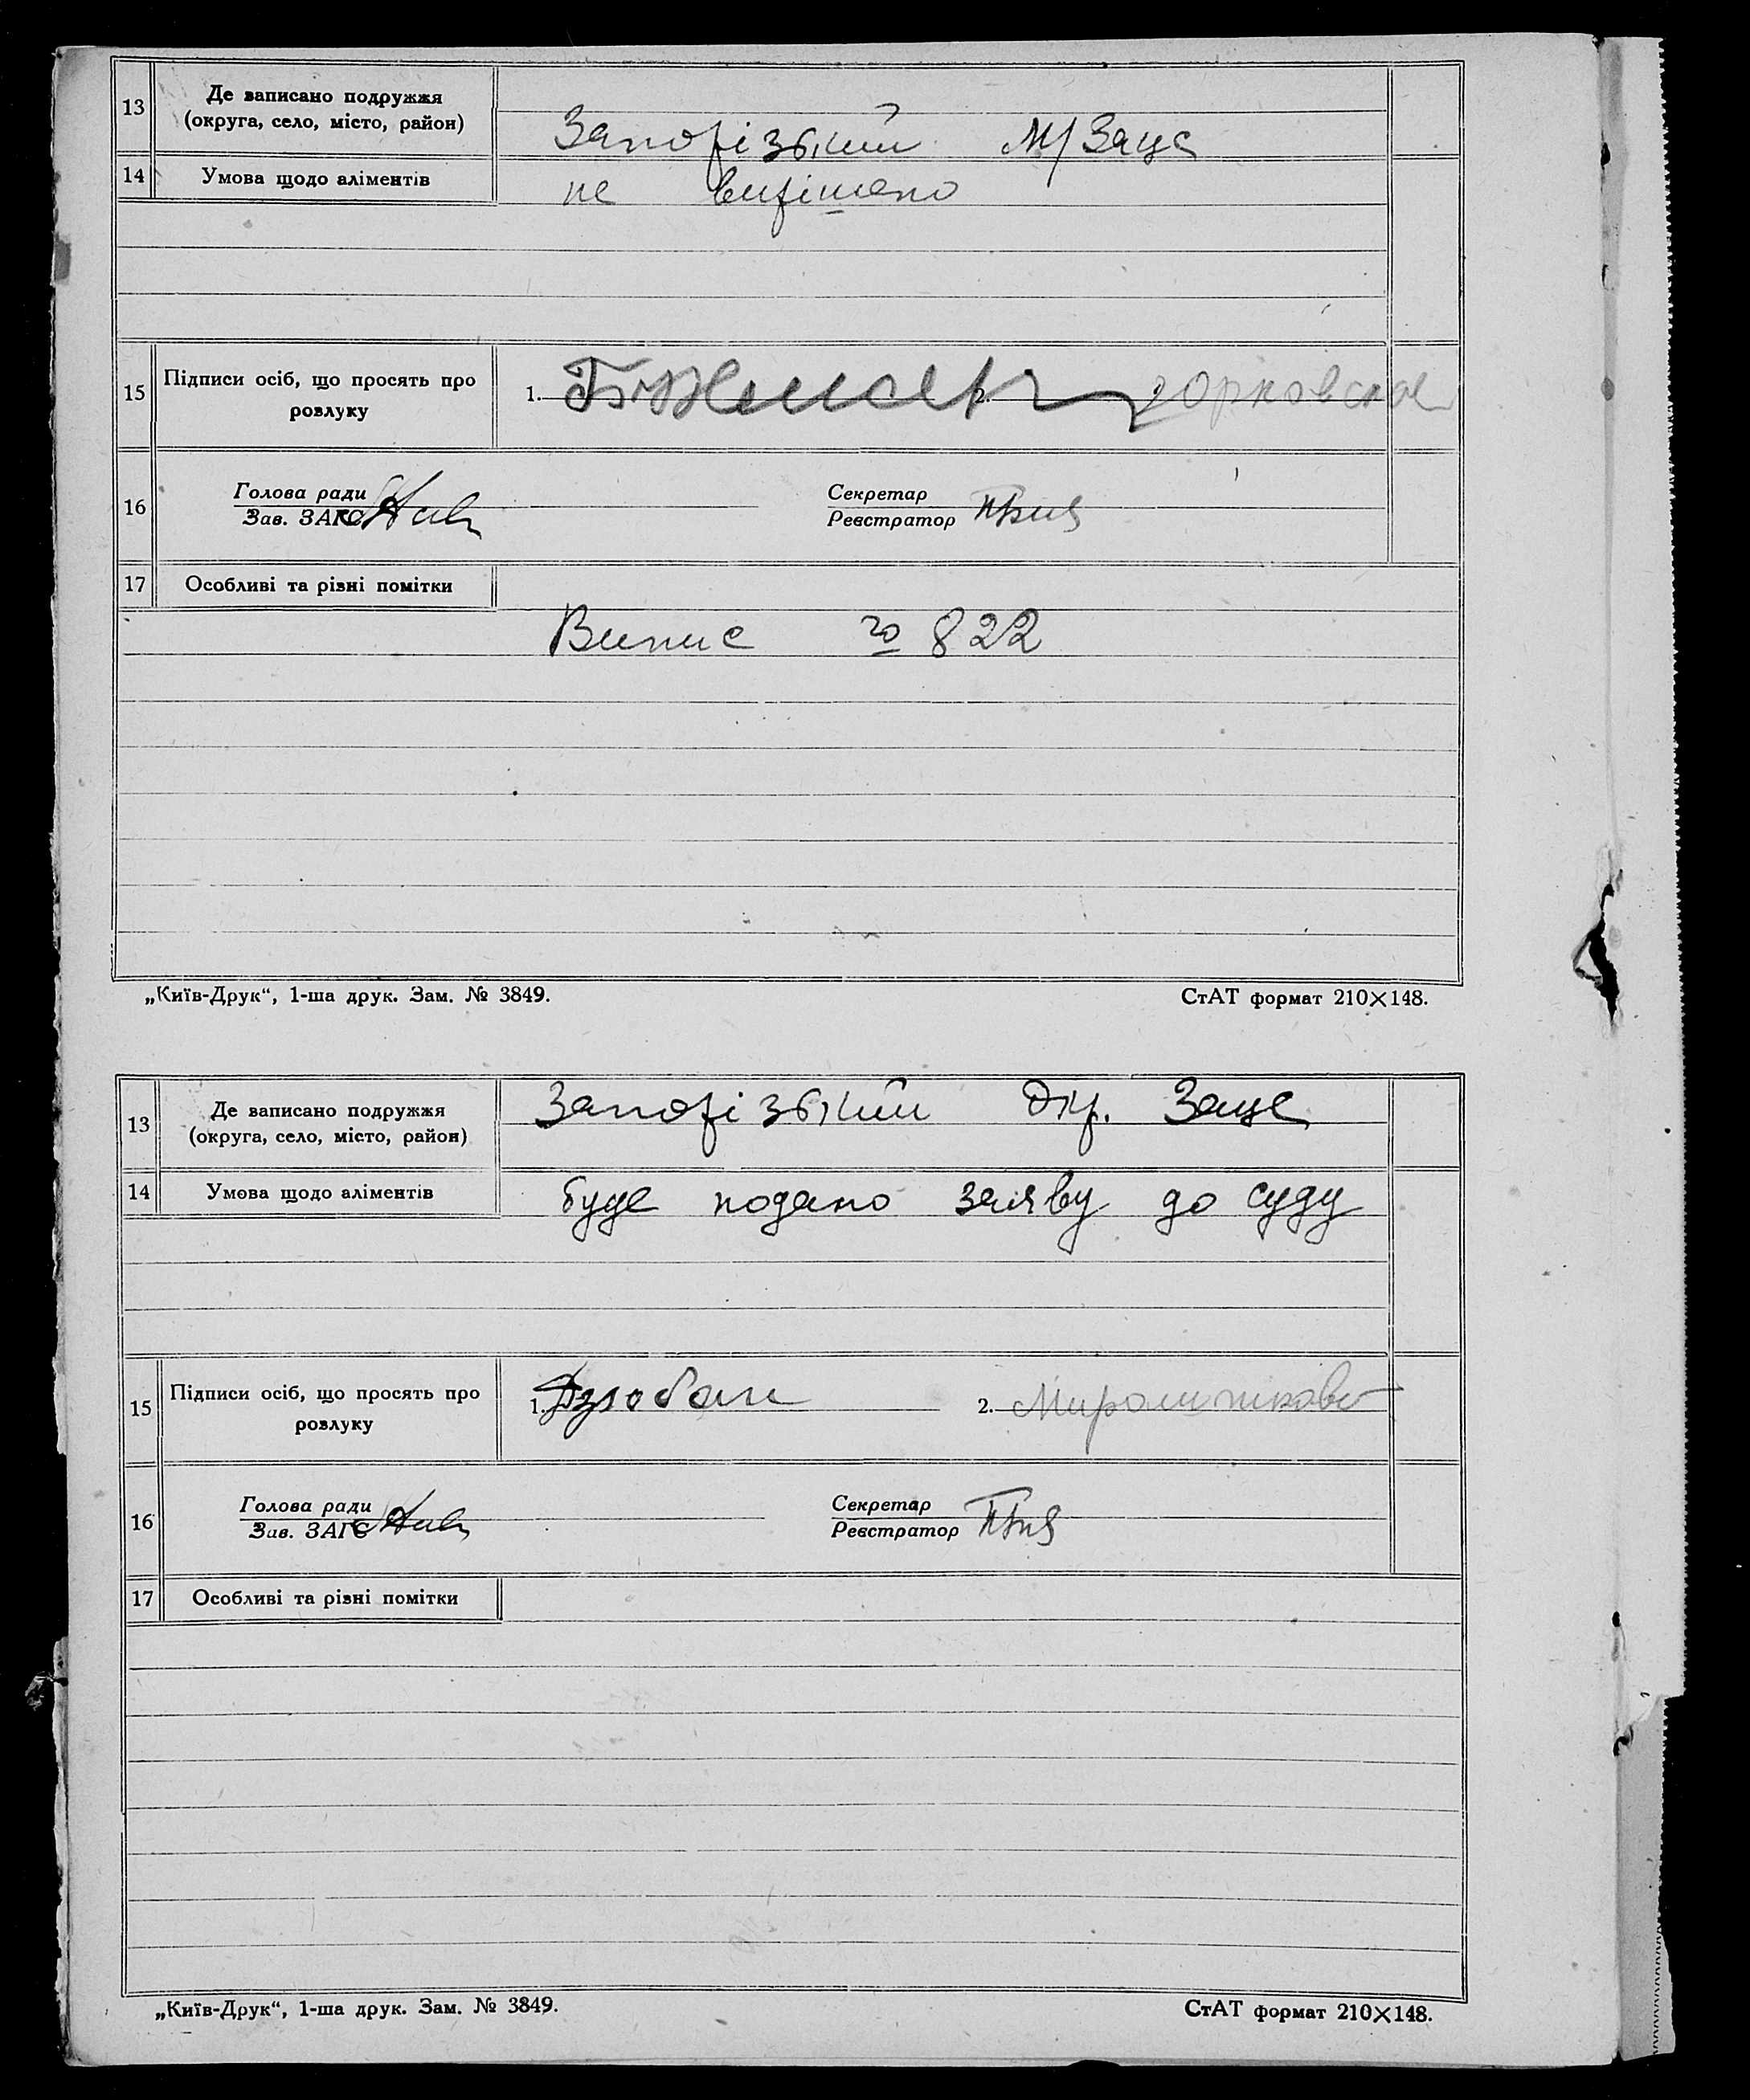 13 Де записано подружжя
(округа, село, місто, район)
Запорізький М/Загс
14 Умова щодо аліментів
не вирішено
15 Підписи осіб, що просять про
розлуку
1. 2. Горковская
16 Голова ради
Зав. ЗАГС
Секретар
Реєстратор
17 Особливі та різні помітки
Випис № 822
„Київ-Друк“, 1-ша друк. Зам. № 3849. СтАТ формат 210×148.
13 Де записано подружжя
(округа, село, місто, район)
Запорізький Окр. Загс
14 Умова щодо аліментів
буде подано заяву до суду
15 Підписи осіб, що просять про
розлуку
1. Дзюбан 2. Мирошникова
16 Голова ради
Зав. ЗАГС
Секретар
Реєстратор
17 Особливі та різні помітки
„Київ-Друк“, 1-ша друк. Зам. № 3849. СтАТ формат 210×148.